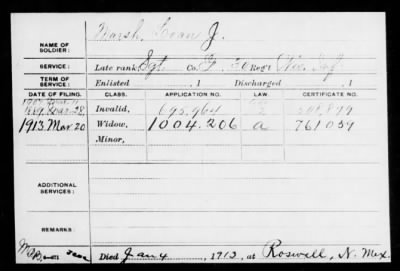 NAME OF
SOLDIER:
Marsh, J.
SERVICE:
Late rank, Sgt. Co. F, 30 Reg't Wis. Inf.
TERM OF
SERVICE:
Enlisted , 1 Discharged , 1
DATE OF FILING. CLASS. APPLICATION NO. LAW. CERTIFICATE NO.
Invalid, 695,964
1913 Mar. 20 Widow, 1004.206 a 761059
Minor,
ADDITIONAL
SERVICES:
REMARKS:
Died Jan 4, 1913, at Roswell, N. Mex.